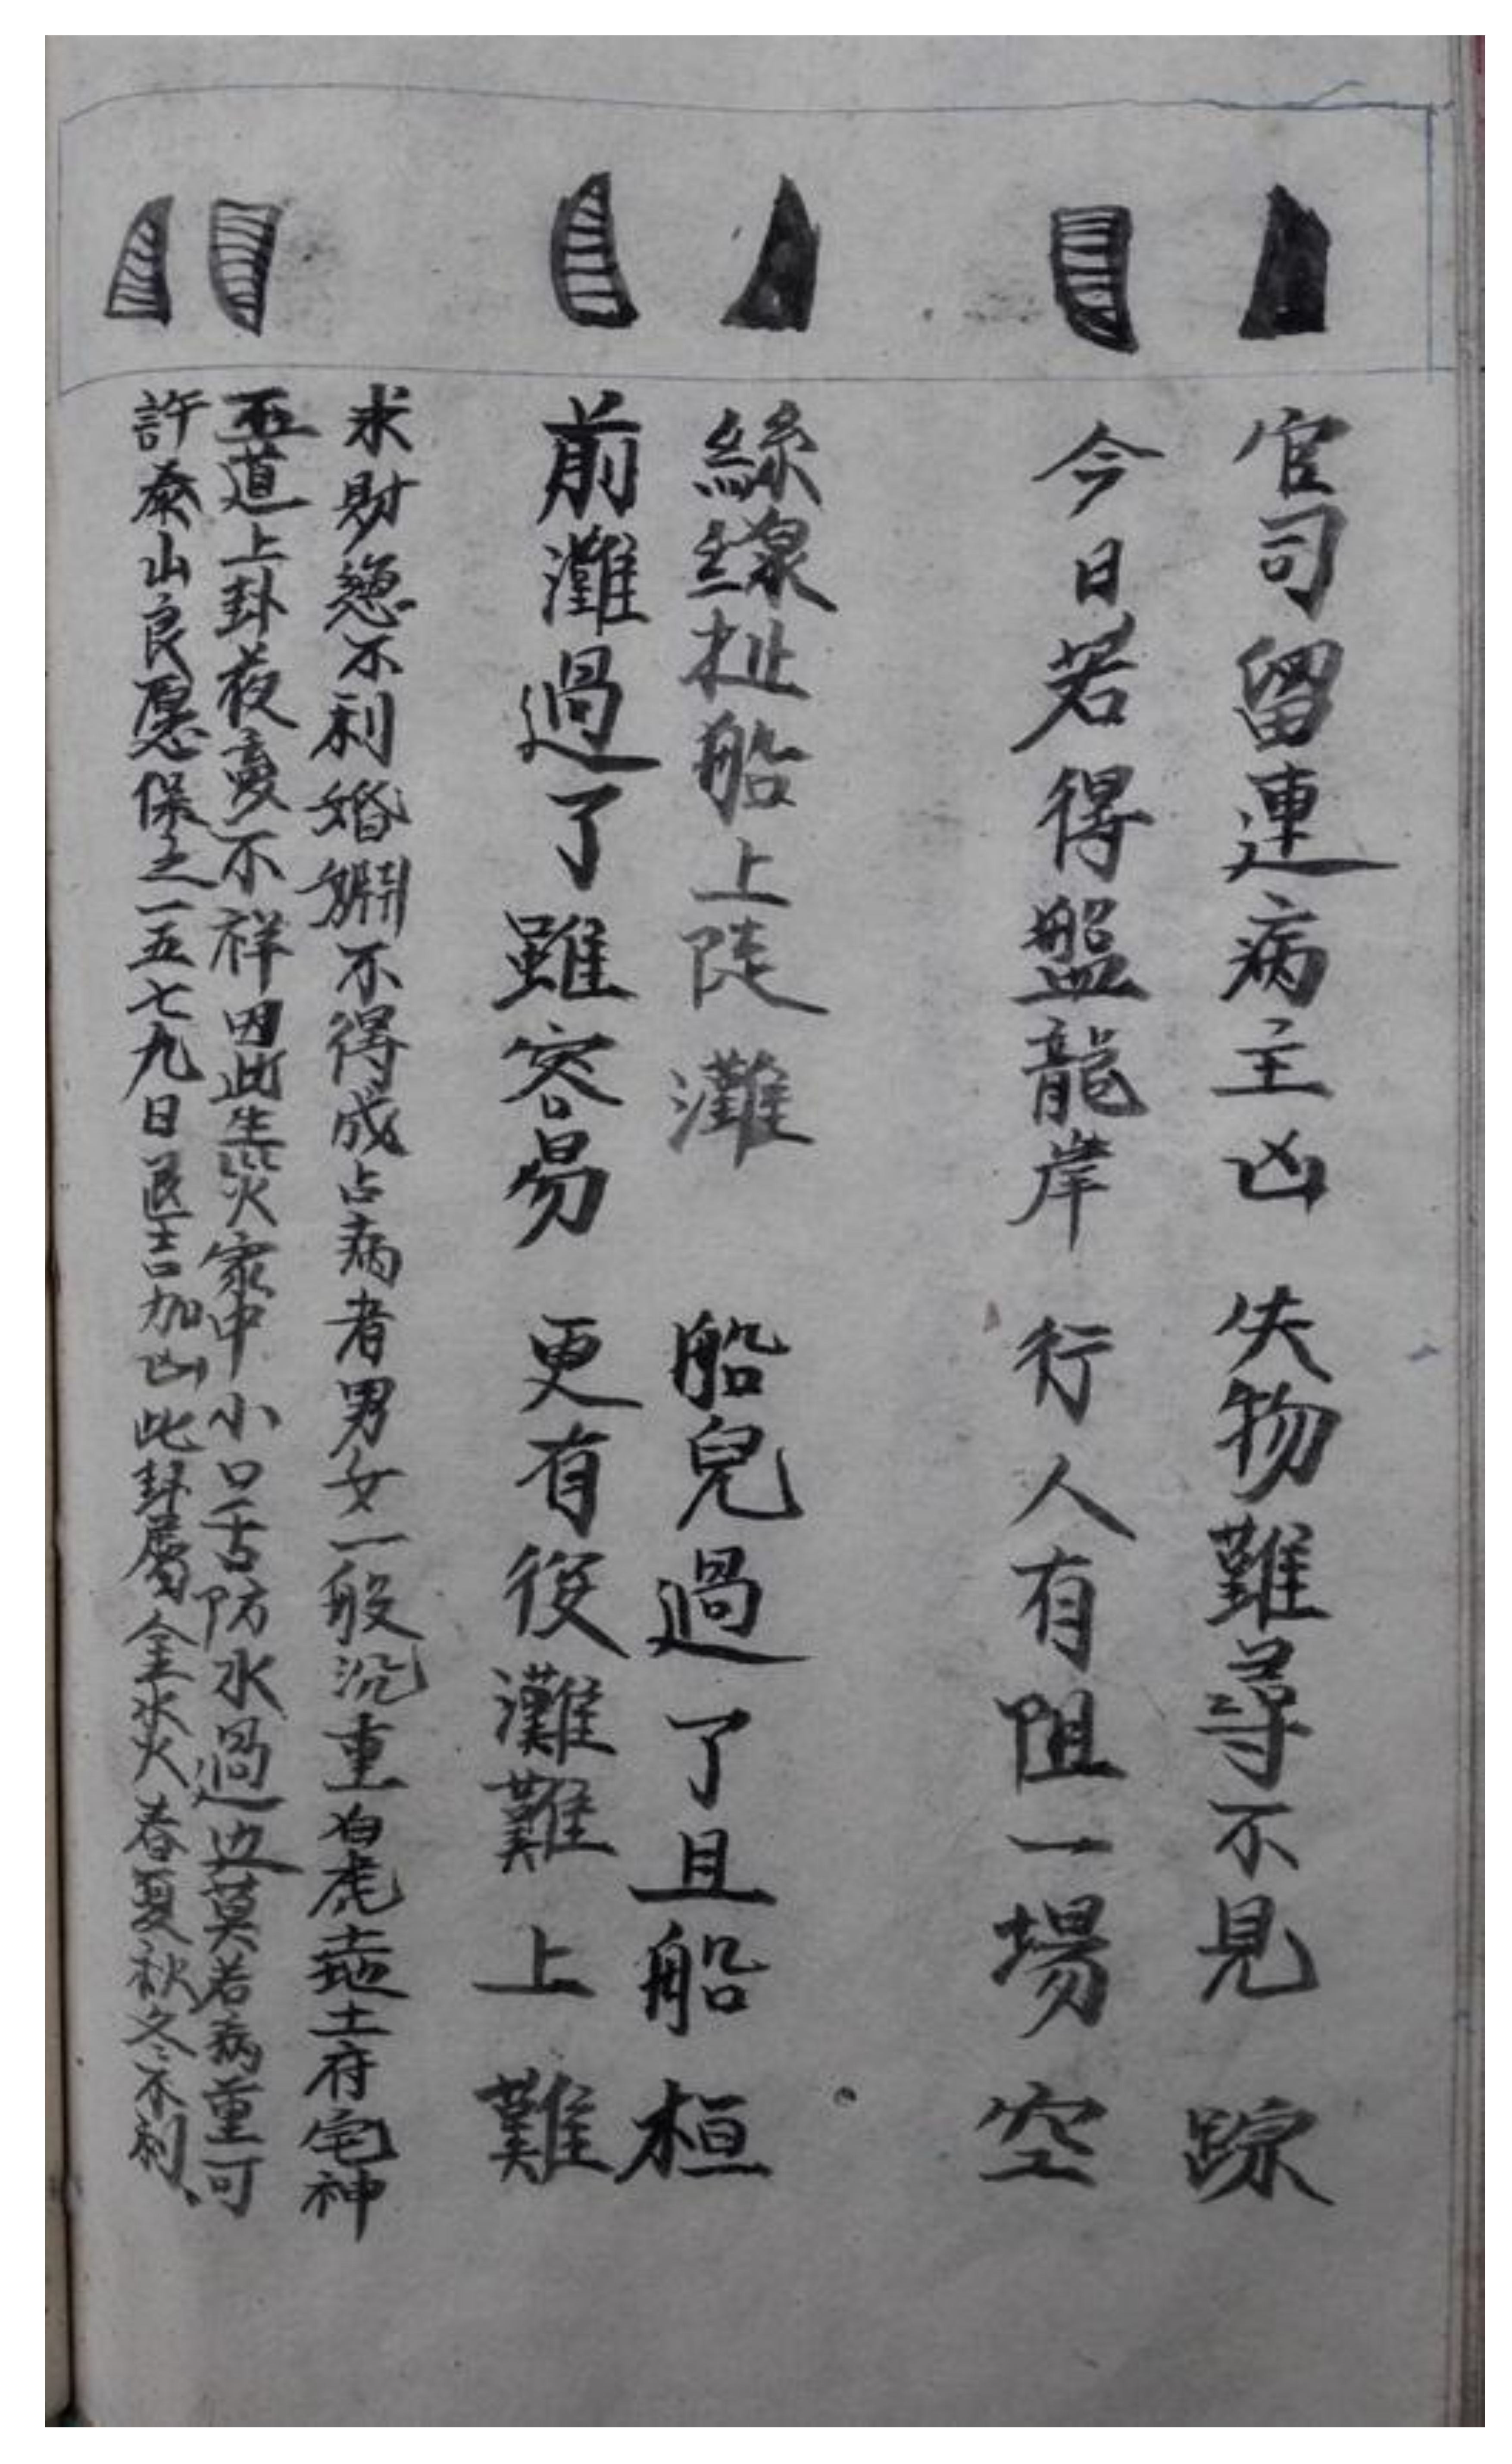 官司留連病主凶 失物難尋不見踪
今日若得盤龍岸 行人有阻一場空
絲線扯船上陡灘 船兒過了且船桓
前灘過了雖容易 更有後灘難上難
求財總不利婚姻不得成占病者男女一般沉重白虎土府宅神
五道上卦夜夢不祥因此生災家中小口舌防水過边莫若病重可
許泰山良愿保之一五七九日医吉加凶此卦屬金水火春夏秋冬不利